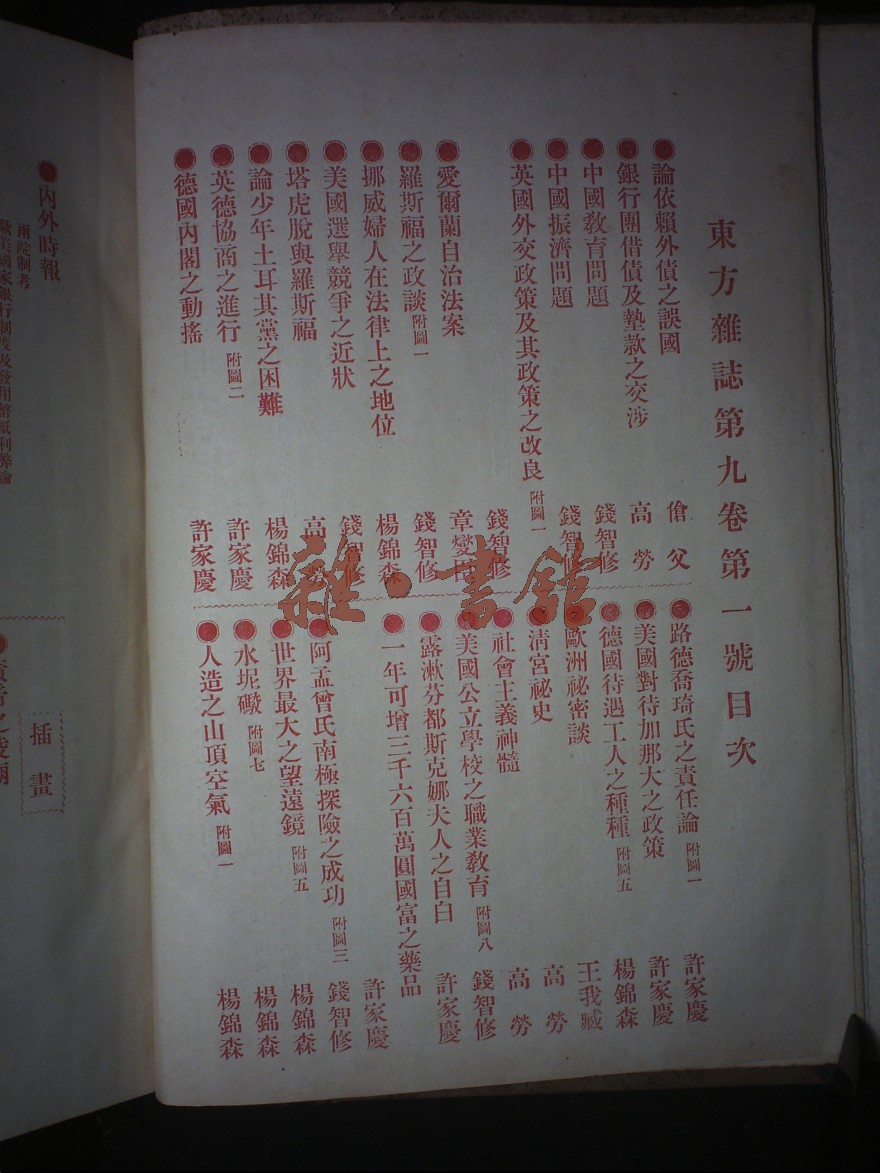 東方雜誌第九卷第一號目次
論依賴外債之誤國 傖父
銀行團借債及墊款之交涉 高勞
中國教育問題 錢智修
中國振濟問題 錢智修
英國外交政策及其政策之改良 附圖一 錢智修
愛爾蘭自治法案 章燮
羅斯福之政談 附圖一 錢智修
挪威婦人在法律上之地位 楊錦森
美國選舉競爭之近狀 錢智修
塔虎脫與羅斯福 高勞
論少年土耳其黨之困難 楊錦森
英德協商之進行 附圖二 許家慶
德國內閣之動搖 許家慶
路德喬琦氏之責任論 附圖一 許家慶
美國對待加那大之政策 許家慶
德國待遇工人之種種 附圖五 楊錦森
歐洲祕密談 王我臧
清宮祕史 高勞
社會主義神髓 高勞
美國公立學校之職業教育 附圖八 錢智修
露漱芬都斯克娜夫人之自白 許家慶
一年可增三千六百萬圓國富之藥品 許家慶
阿孟曾氏南極探險之成功 附圖三 錢智修
世界最大之望遠鏡 附圖五 楊錦森
水坭礮 附圖七 楊錦森
人造之山頂空氣 附圖一 楊錦森
雜·書館
內外時報
兩院制考
歐美國家銀行制度及發用幣紙利弊論
插畫